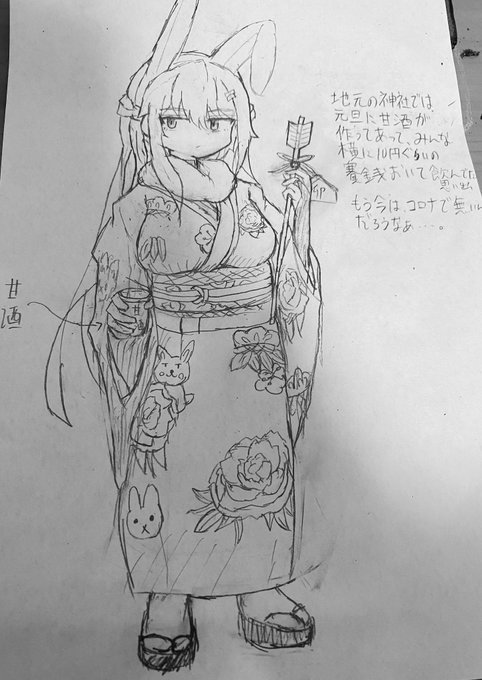 地元の神社では
元旦に甘酒が
作ってあって、みんな
横に10円ぐらいの
賽銭おいて飲んでた
思い出
もう今は、コロナで無いん
だろうなぁ…。
卯
甘酒